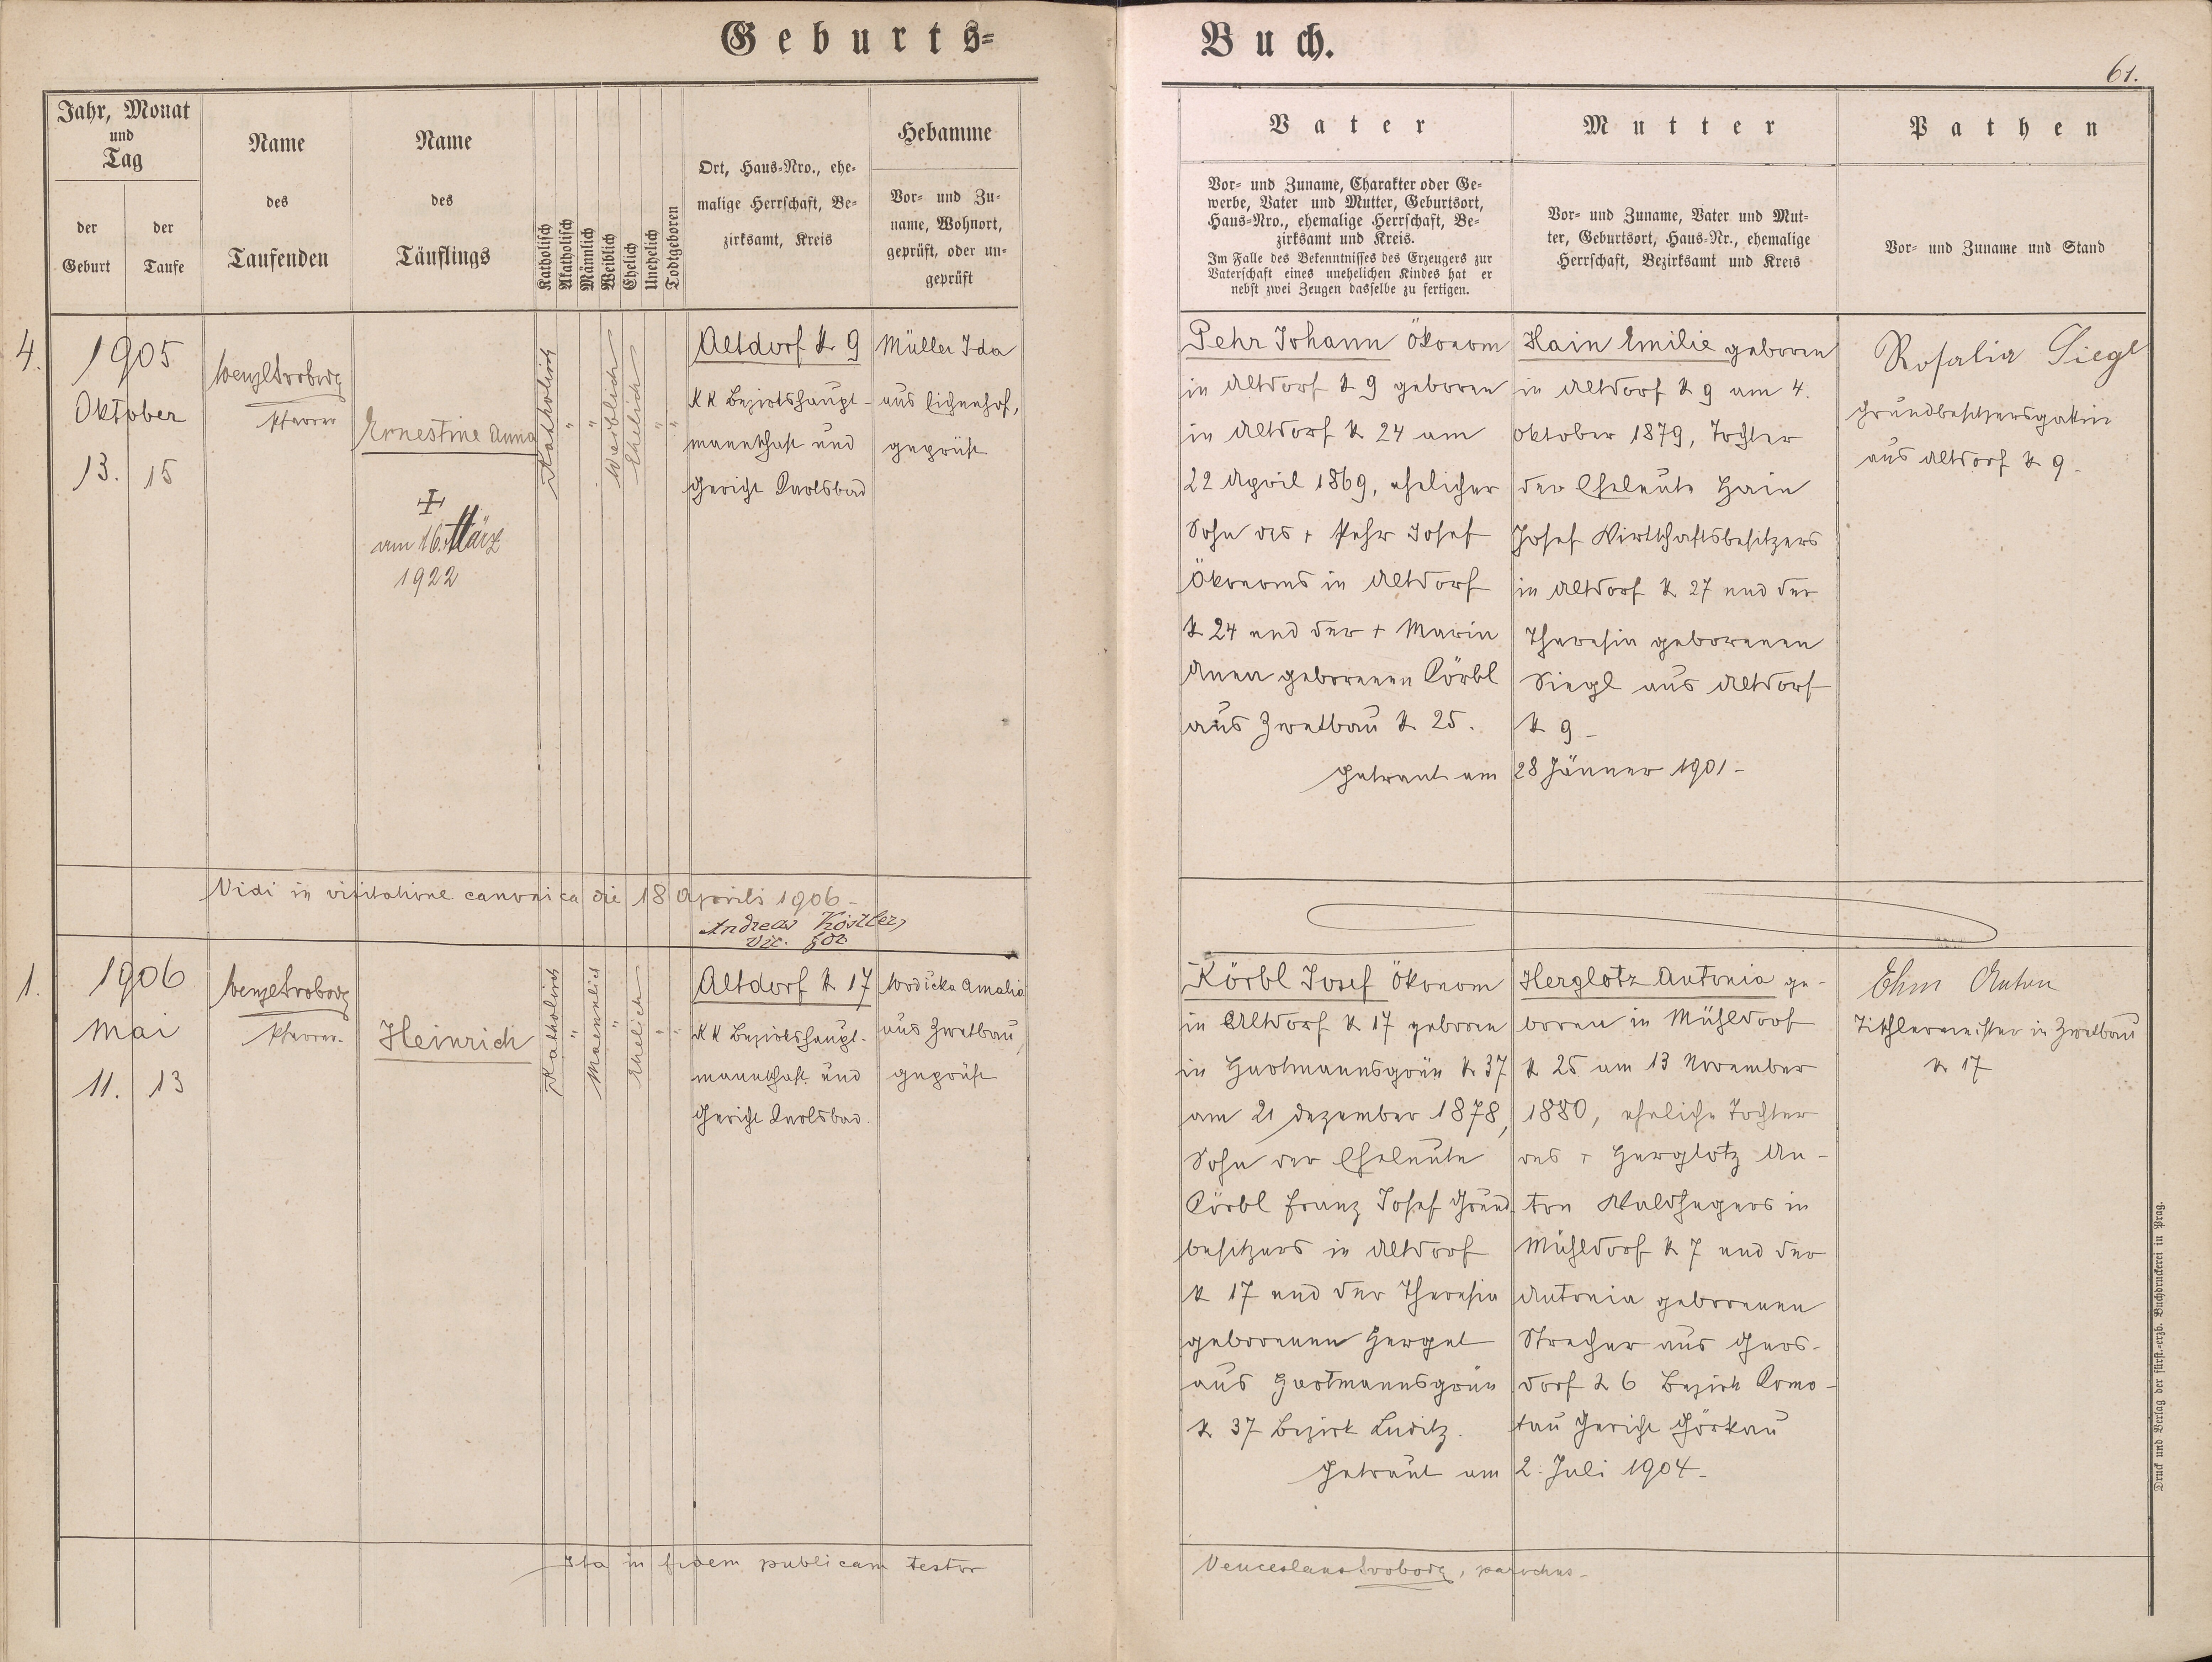 Geburts=
Buch.
61.
Jahr, Monat
und
Tag
der
Geburt
der
Taufe
Name
des
Taufenden
Name
des
Täuflings
Katholisch
Akatholisch
Männlich
Weiblich
Ehelich
Unehelich
Todtgeboren
Ort, Haus-Nro., ehe-
malige Herrschaft, Be-
zirksamt, Kreis
Hebamme
Vor- und Zu-
name, Wohnort,
geprüft, oder un-
geprüft
Vater
Vor- und Zuname, Charakter oder Ge-
werbe, Vater und Mutter, Geburtsort,
Haus-Nro., ehemalige Herrschaft, Be-
zirksamt und Kreis.
Im Falle des Bekenntnisses des Erzeugers zur
Vaterschaft eines unehelichen Kindes hat er
nebst zwei Zeugen dasselbe zu fertigen.
Mutter
Vor- und Zuname, Vater und Mut-
ter, Geburtsort, Haus-Nr., ehemalige
Herrschaft, Bezirksamt und Kreis
Pathen
Vor- und Zuname und Stand
4.
1905
Oktober
13. 15
Wenzl Svoboda
Pfarrer
Ernestine Anna
+
am 16. März
1922
Katholisch
"
"
Weiblich
Ehelich
"
"
Altdorf N 9
KK Bezirkshaupt-
mannschaft und
Gericht Karlsbad
Müller Ida
aus Eichenhof,
geprüft
Pehr Johann Ökonom
in Altdorf N 9 geboren
in Altdorf N 24 am
22 April 1869, ehelicher
Sohn des + Pehr Josef
Ökonoms in Altdorf
N 24 und der + Maria
Anna geborenen Körbl
aus Zwetbau N 25.
Hain Emilie geboren
in Altdorf N 9 am 4.
Oktober 1879, Tochter
der Eheleute Hain
Josef Wirtschaftsbesitzers
in Altdorf N 27 und der
Theresia geborenen
Siegl aus Altdorf
N 9 -
getraut am 28 Jänner 1901 -
Rosalia Siegl
Grundbesitzersgattin
aus Altdorf N 9 -
Vidi in visitatione canonica die 18 Aprilis 1906 -
Andreas Köstler,
vic. for
1.
1906
Mai
11. 13
Wenzl Svoboda
Pfarrer -
Heinrich
Katholisch
"
Maennlich
"
Ehelich
"
"
Altdorf N 17
KK Bezirkshaupt-
mannschaft und
Gericht Karlsbad.
Wodicka Amalia
aus Zwetbau,
geprüft
Körbl Josef Ökonom
in Altdorf N 17 geboren
in Hartmannsgrün N 37
am 21 Dezember 1878,
Sohn der Eheleute
Körbl Franz Josef Grund-
besitzers in Altdorf
N 17 und der Theresia
geborenen Hergel
aus Hartmannsgrün
N 37 Bezirk Luditz.
Herglotz Antonia ge-
boren in Mühldorf
N 25 am 13 November
1880, eheliche Tochter
des + Herglotz An-
ton Waldhegers in
Mühldorf N 7 und der
Antonia geborenen
Strecher aus Gers-
dorf N 6 Bezirk Komo-
tau Gericht Görkau
getraut am 2. Juli 1904 -
Ehm Anton
Tischlermeister in Zwetbau
N 17
Ita in fidem publicam testor
Venceslaus Svoboda, parochus -
Druck und Verlag der fürst.-erzb. Buchdruckerei in Prag.